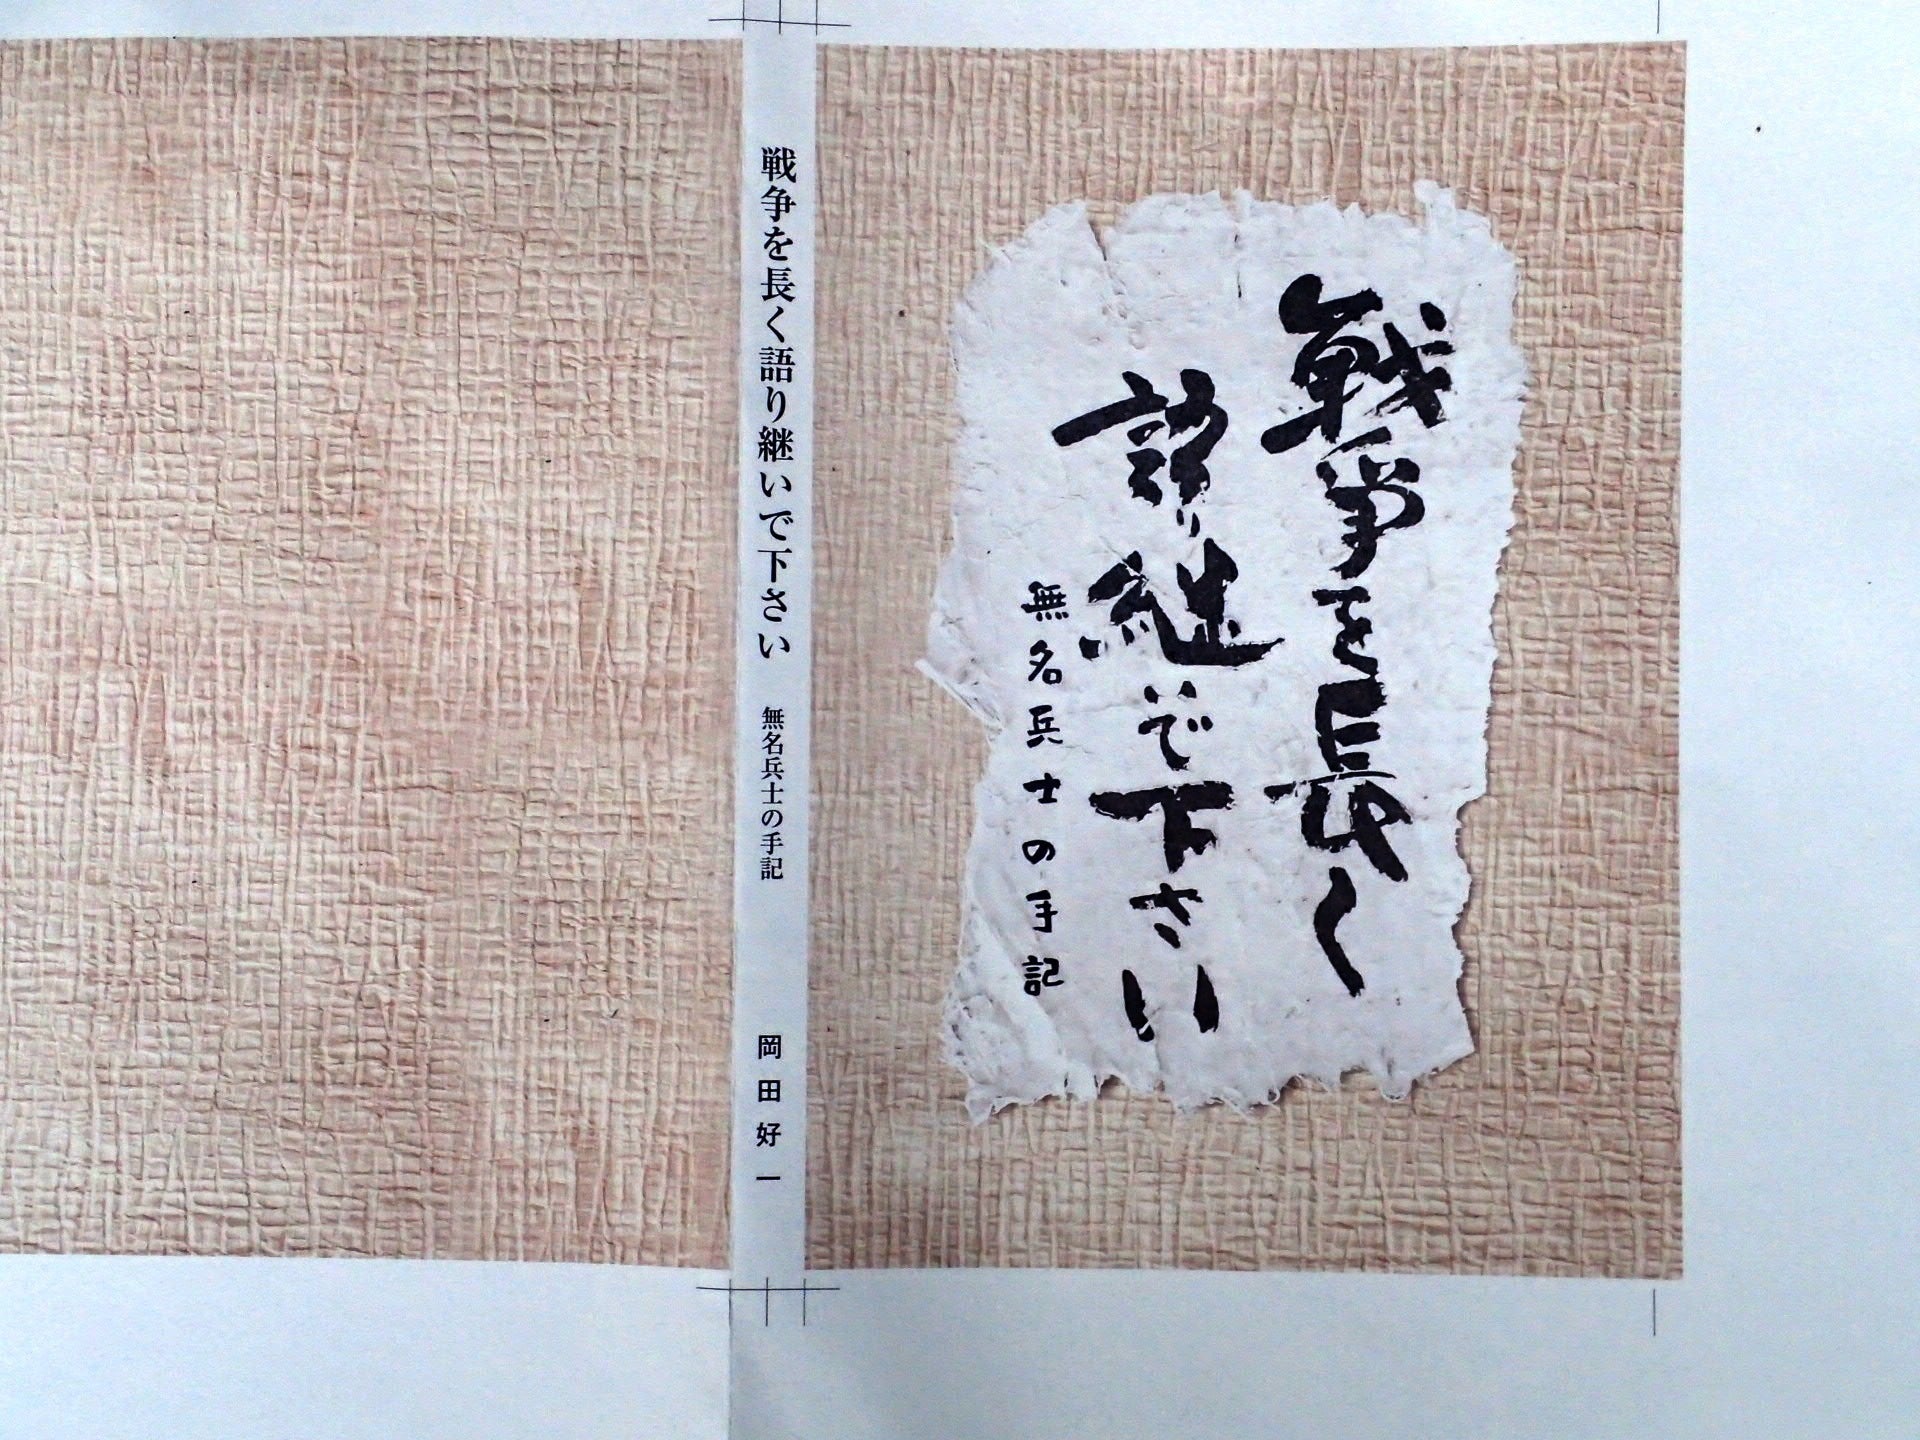 戦争を長く
語り継いで下さい
無名兵士の手記
戦争を長く語り継いで下さい 無名兵士の手記 岡田好一